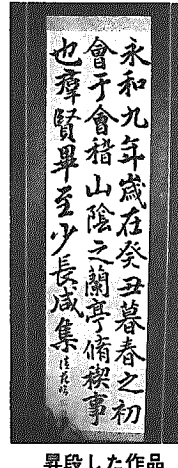 永和九年歳在癸丑暮春之初
會于會稽山陰之蘭亭脩禊事
也羣賢畢至少長咸集
昇段した作品